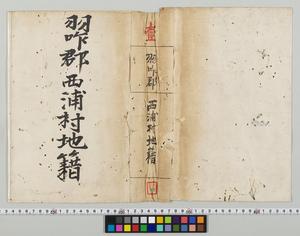 壹
羽咋郡
西浦村地籍
羽咋郡西浦村地籍